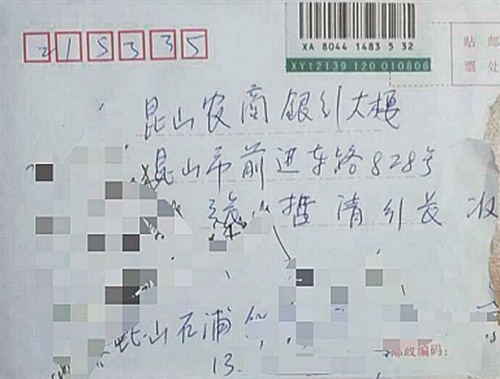 215335
XA 8044 1483 5 32
XY12139 120 010806
贴 邮
票 处
昆山农商银行大楼
昆山市前进东路828号
哲清行长 收
昆山石浦
13.
邮政编码: